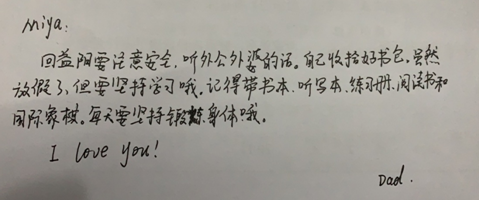 miya:
回益阳要注意安全，听外公外婆的话。自己收拾好书包，虽然
放假了，但要坚持学习哦。记得带书本、听写本、练习册、阅读书和
国际象棋。每天要坚持锻炼身体哦。
I love you!
Dad.